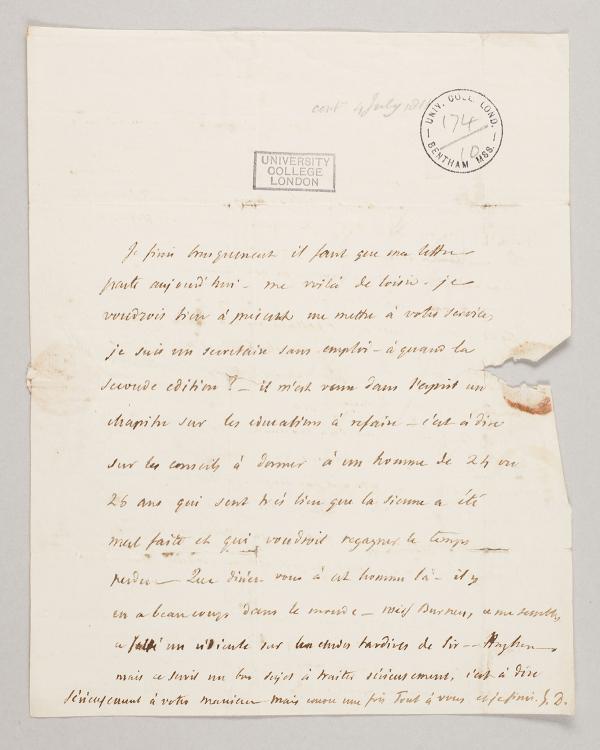 cont 4 July
UNIV. COLL. LOND.
174
10
BENTHAM MSS.
UNIVERSITY
COLLEGE
LONDON
Je finis brusquement il faut que ma lettre
parte aujourd'hui - me voilà de loisir - je
voudrois bien à présent me mettre à votre service,
je suis un secretaire sans emploi - à quand la
seconde edition ? - il m'est venu dans l'esprit un
chapitre sur les educations à refaire - c'est à dire
sur les conseils à donner à un homme de 24 ou
26 ans qui sent très bien que la sienne a été
mal faite et qui voudroit regagner le temps
perdu - Que diriez vous à cet homme là - il y
en a beaucoup dans le monde - Miss Burney, ce me semble,
a un ridicule sur les etudes tardives de Sir Hughes,
mais ce seroit un bon sujet à traiter sérieusement, c'est à dire
sérieusement à votre maniere mais encore une fois Tout à vous et je finis. D.